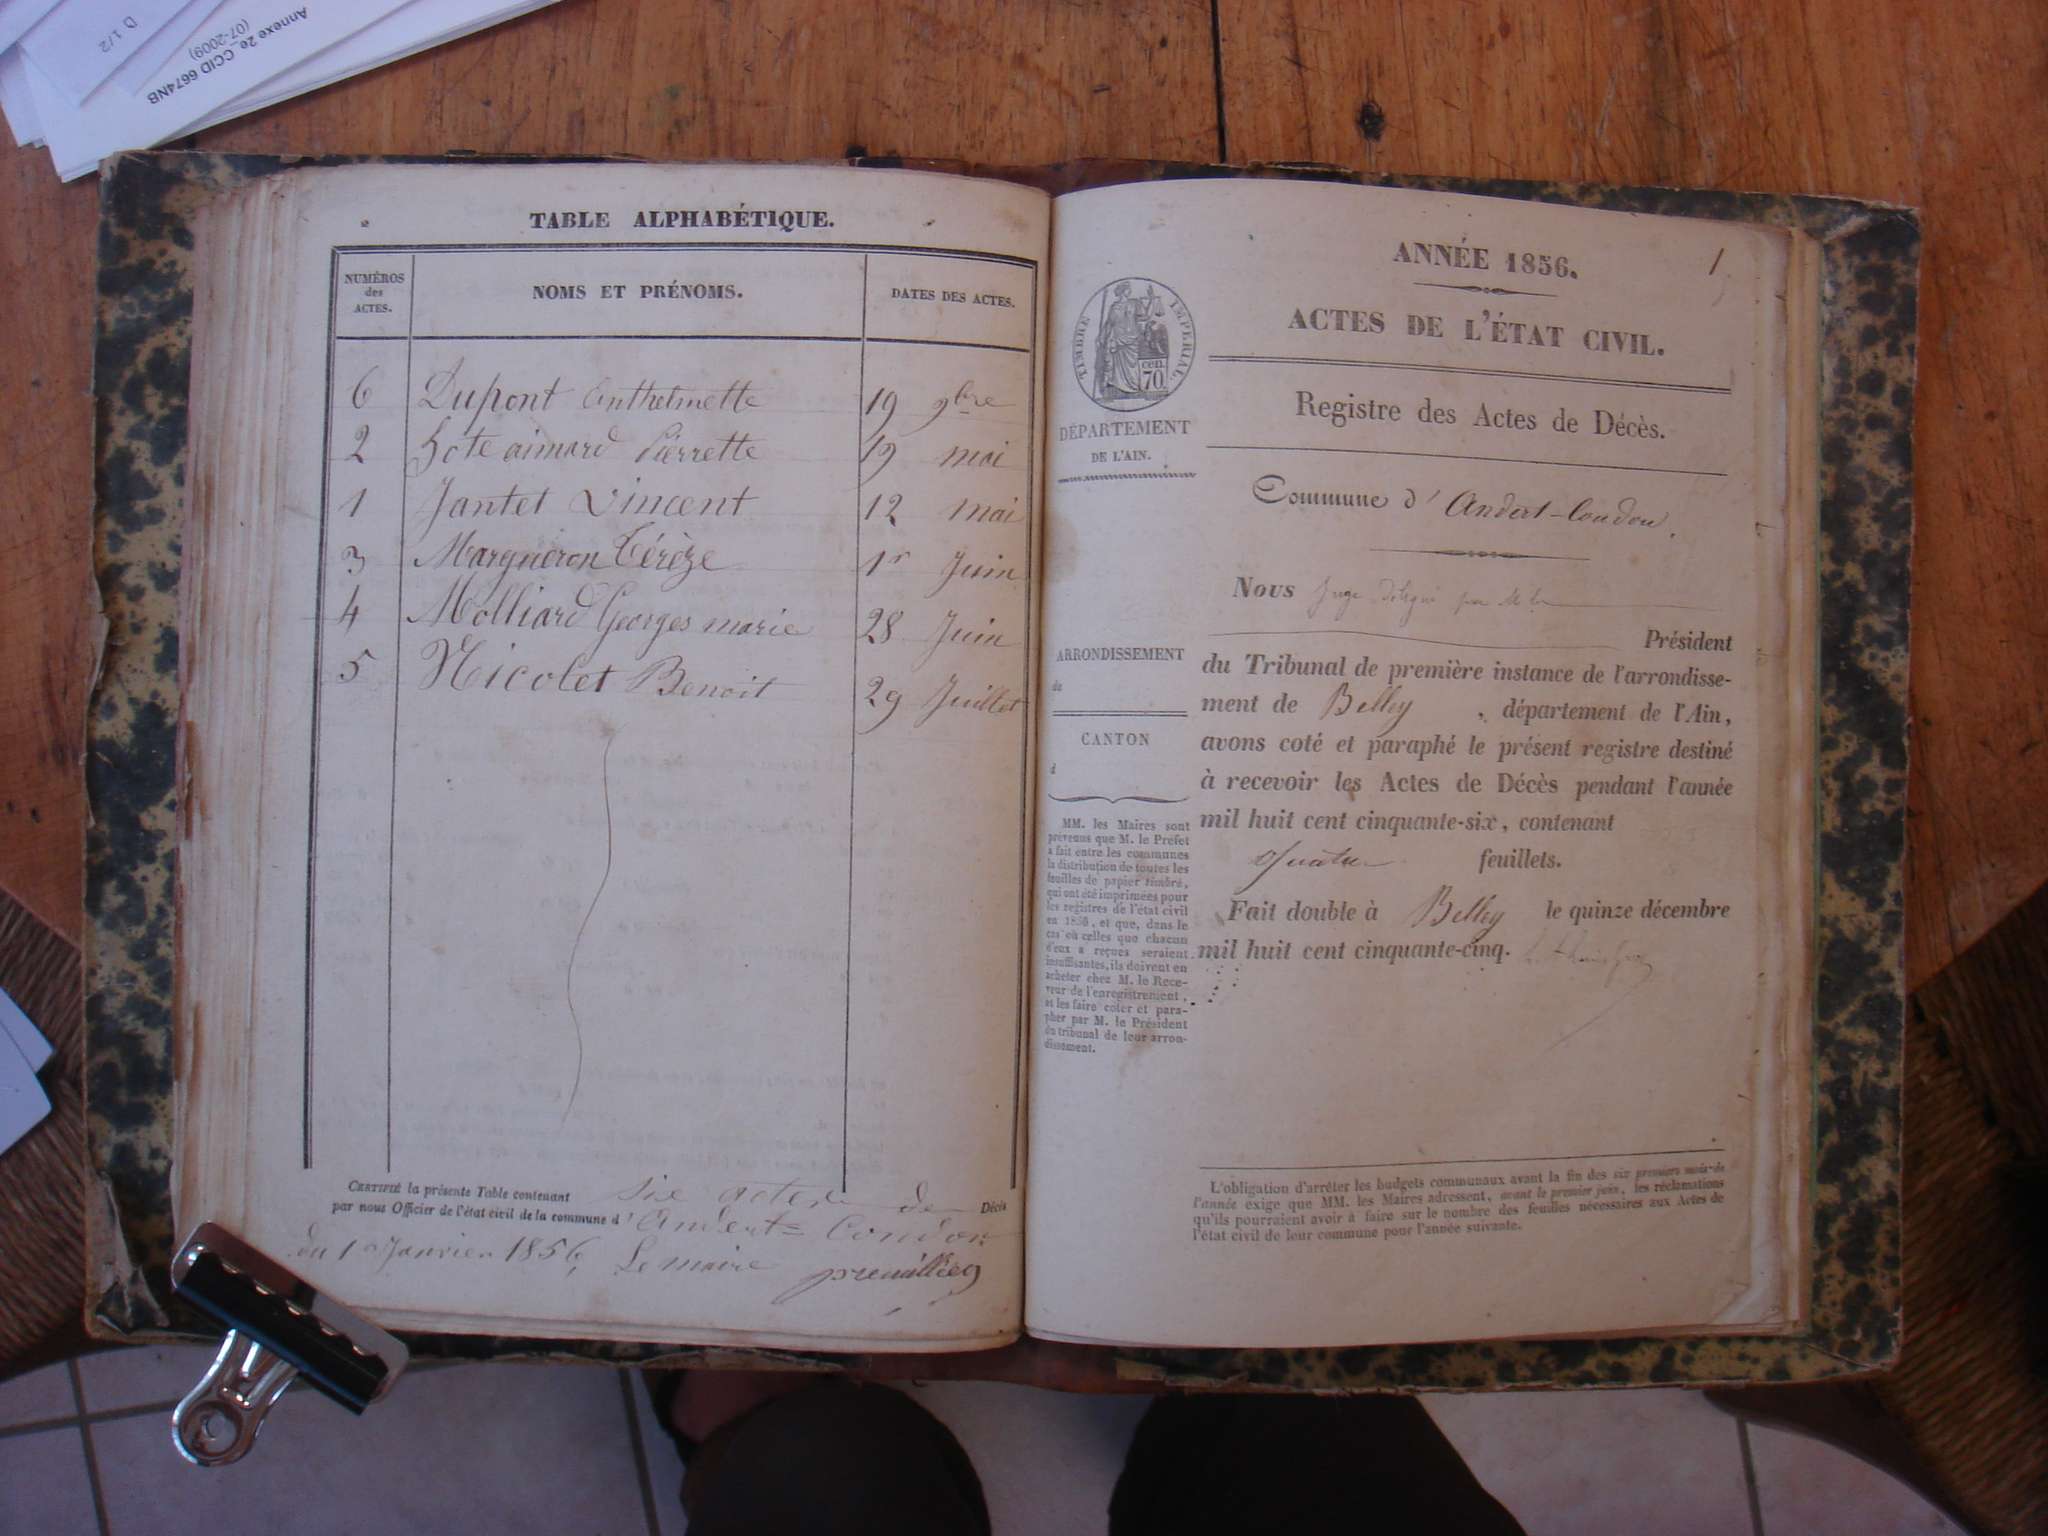 Annexe 2e_CCID 6674NB
(07-2009)
D 1/2
TABLE ALPHABÉTIQUE.
NUMÉROS des ACTES.
NOMS ET PRÉNOMS.
DATES DES ACTES.
6 Dupont Anthelmette 19 9bre
2 hote aimard Pierrette 19 mai
1 Jantet Vincent 12 mai
3 Margueron Térèze 1r Juin
4 Molliard Georges marie 28 Juin
5 Nicolet Benoit 29 Juillet
CERTIFIÉ la présente Table contenant six actes de Décès
par nous Officier de l'état civil de la commune d'Andert=Condon
du 1 Janvier 1856, Le maire
1
ANNÉE 1856.
ACTES DE L'ÉTAT CIVIL.
TIMBRE IMPERIAL.
cen. 70.
DÉPARTEMENT
DE L'AIN.
Registre des Actes de Décès.
Commune d'Andert-Condon.
Nous Juge délégué par Mr le
Président
du Tribunal de première instance de l'arrondisse-
ment de Belley, département de l'Ain,
avons coté et paraphé le présent registre destiné
à recevoir les Actes de Décès pendant l'année
mil huit cent cinquante-six, contenant
Quatre feuillets.
Fait double à Belley le quinze décembre
mil huit cent cinquante-cinq.
ARRONDISSEMENT
de
CANTON
d
MM. les Maires sont
prévenus que M. le Préfet
a fait entre les communes
la distribution de toutes les
feuilles de papier timbré,
qui ont été imprimées pour
les registres de l'état civil
en 1856, et que, dans le
cas où celles que chacun
d'eux a reçues seraient
insuffisantes, ils doivent en
acheter chez M. le Rece-
veur de l'enregistrement,
et les faire coter et para-
pher par M. le Président
du tribunal de leur arron-
dissement.
L'obligation d'arrêter les budgets communaux avant la fin des six premiers mois de
l'année exige que MM. les Maires adressent, avant le premier juin, les réclamations
qu'ils pourraient avoir à faire sur le nombre des feuilles nécessaires aux Actes de
l'état civil de leur commune pour l'année suivante.